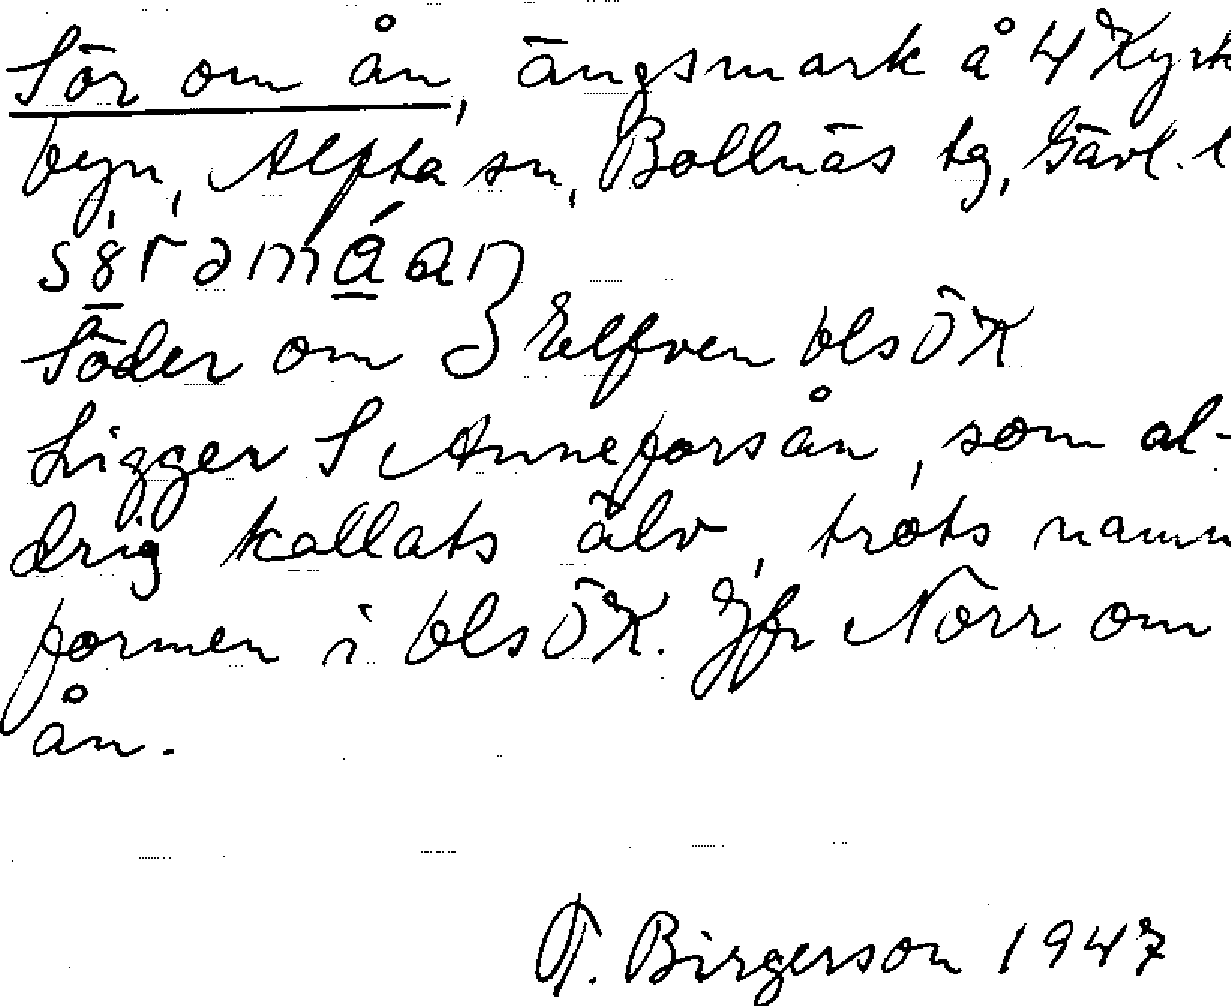 Sör om ån, ängsmark å 4 Kyrk
byn, Alfta sn, Bollnäs tg, Gävl. l
Söder om Elfven blsÖK
Ligger S Anneforsån, som al-
drig kallats älv, trots namn
formen i blsÖK. Jfr Norr om
ån.
T. Birgerson 1947